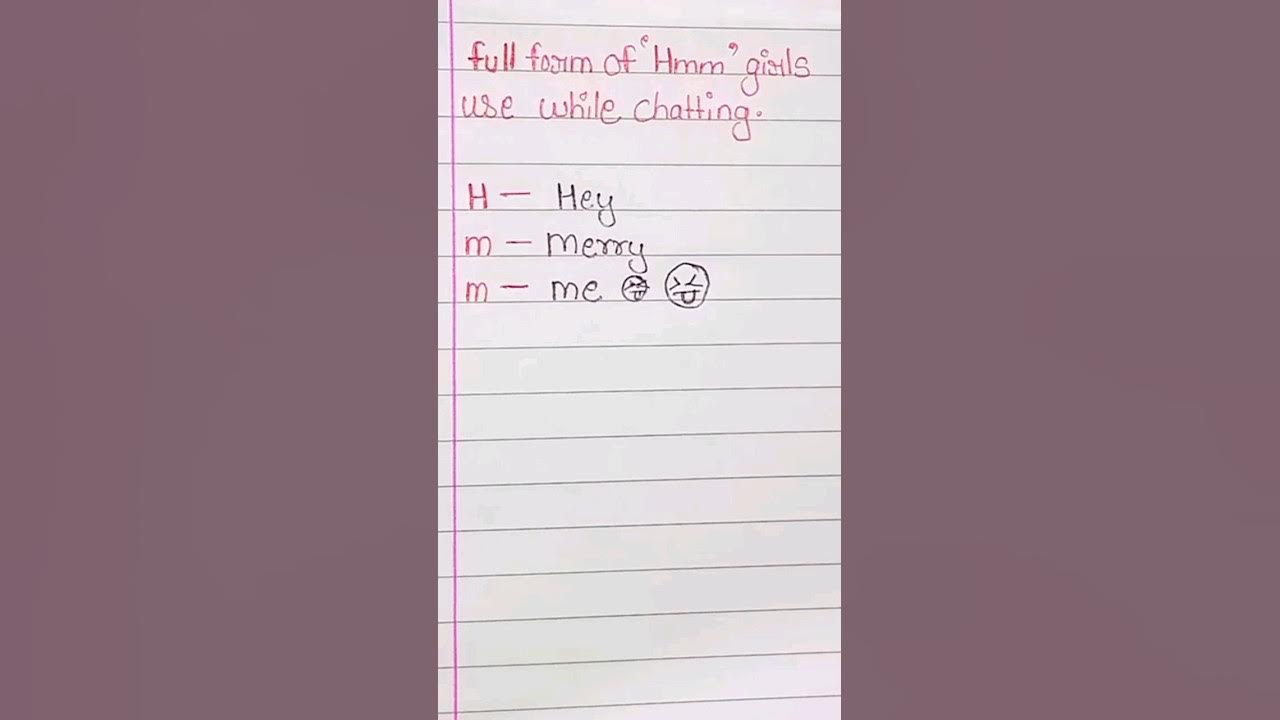 full form of "Hmm" girls
use while chatting.
H — Hey
m — merry
m — me